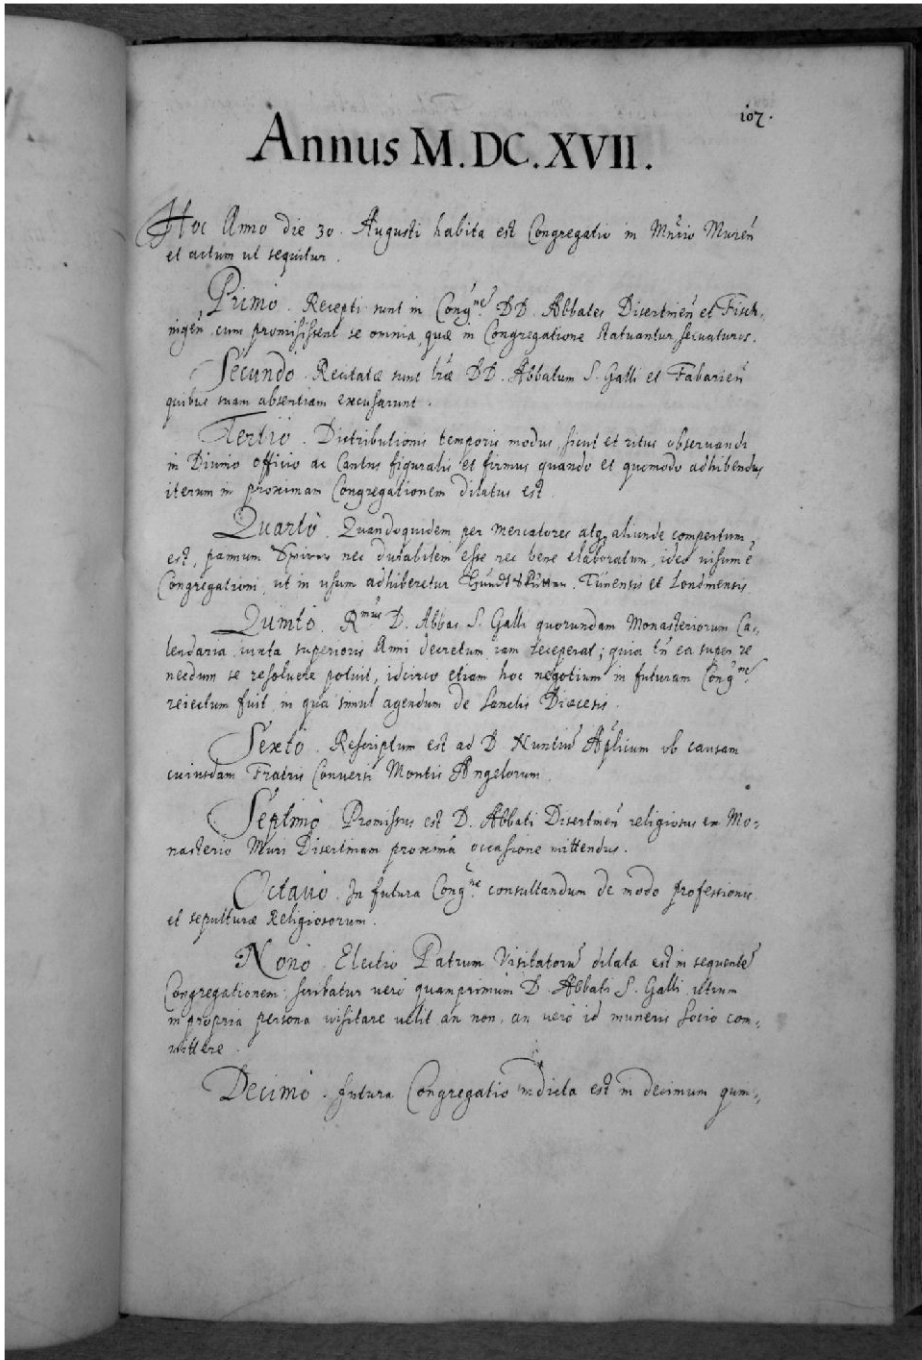 107.
Annus M.DC.XVII.
Hoc Anno die 30. Augusti habita est Congregatio in Mnrio Mureñ
et actum ut sequitur.
Primo. Recepti sunt in Congne. DD. Abbates Disertineñ et Fisch-
ingeñ, cum promisissent se omnia, quæ in Congregatione statuantur, servaturos.
Secundo. Recitatæ sunt lræ DD. Abbatum S. Galli et Fabarieñ
quibus suam absentiam excusarunt.
Tertiò. Distributionis temporis modus, sicut et ritus observandi
in Divino officio ac Cantus figuralis et firmus quando et quomodo adhibendus
iterum in proximam Congregationem dilatus est.
Quartò. Quandoquidem per mercatores atq aliunde compertum
est, pannum nec durabilem esse nec bene elaboratum, ideo visum ē
Congregationi, ut in usum adhiberetur Tunensis et Londinensis.
Quinto. Rmus D. Abbas S. Galli quorundam Monasteriorum Ca-
lendaria iuxta superioris Anni decretum iam receperat; quia tñ ea super re
necdum se resolvere potuit, idcirco etiam hoc negotium in futuram Congne.
reiectum fuit, in qua simul agendum de Sanctis Diœcesis.
Sexto. Rescriptum est ad D. Nuntiū Aplicum ob causam
cuiusdam Fratris Conversi Montis Angelorum.
Septimo. Promissus est D. Abbati Disertineñ religiosus ex Mo-
nasterio Muri Disertinam proximâ occasione mittendus.
Octavo. In futura Congne. consultandum de modo professionis
et sepulturæ Religiosorum.
Nono. Electio Patrum Visitatorū dilata est in sequentē
Congregationem: scribatur vero quamprimum D. Abbati S. Galli utrum
in propria persona visitare velit an non, an vero id muneris socio com-
mittere.
Decimò. futura Congregatio indicta est in decimum quin-